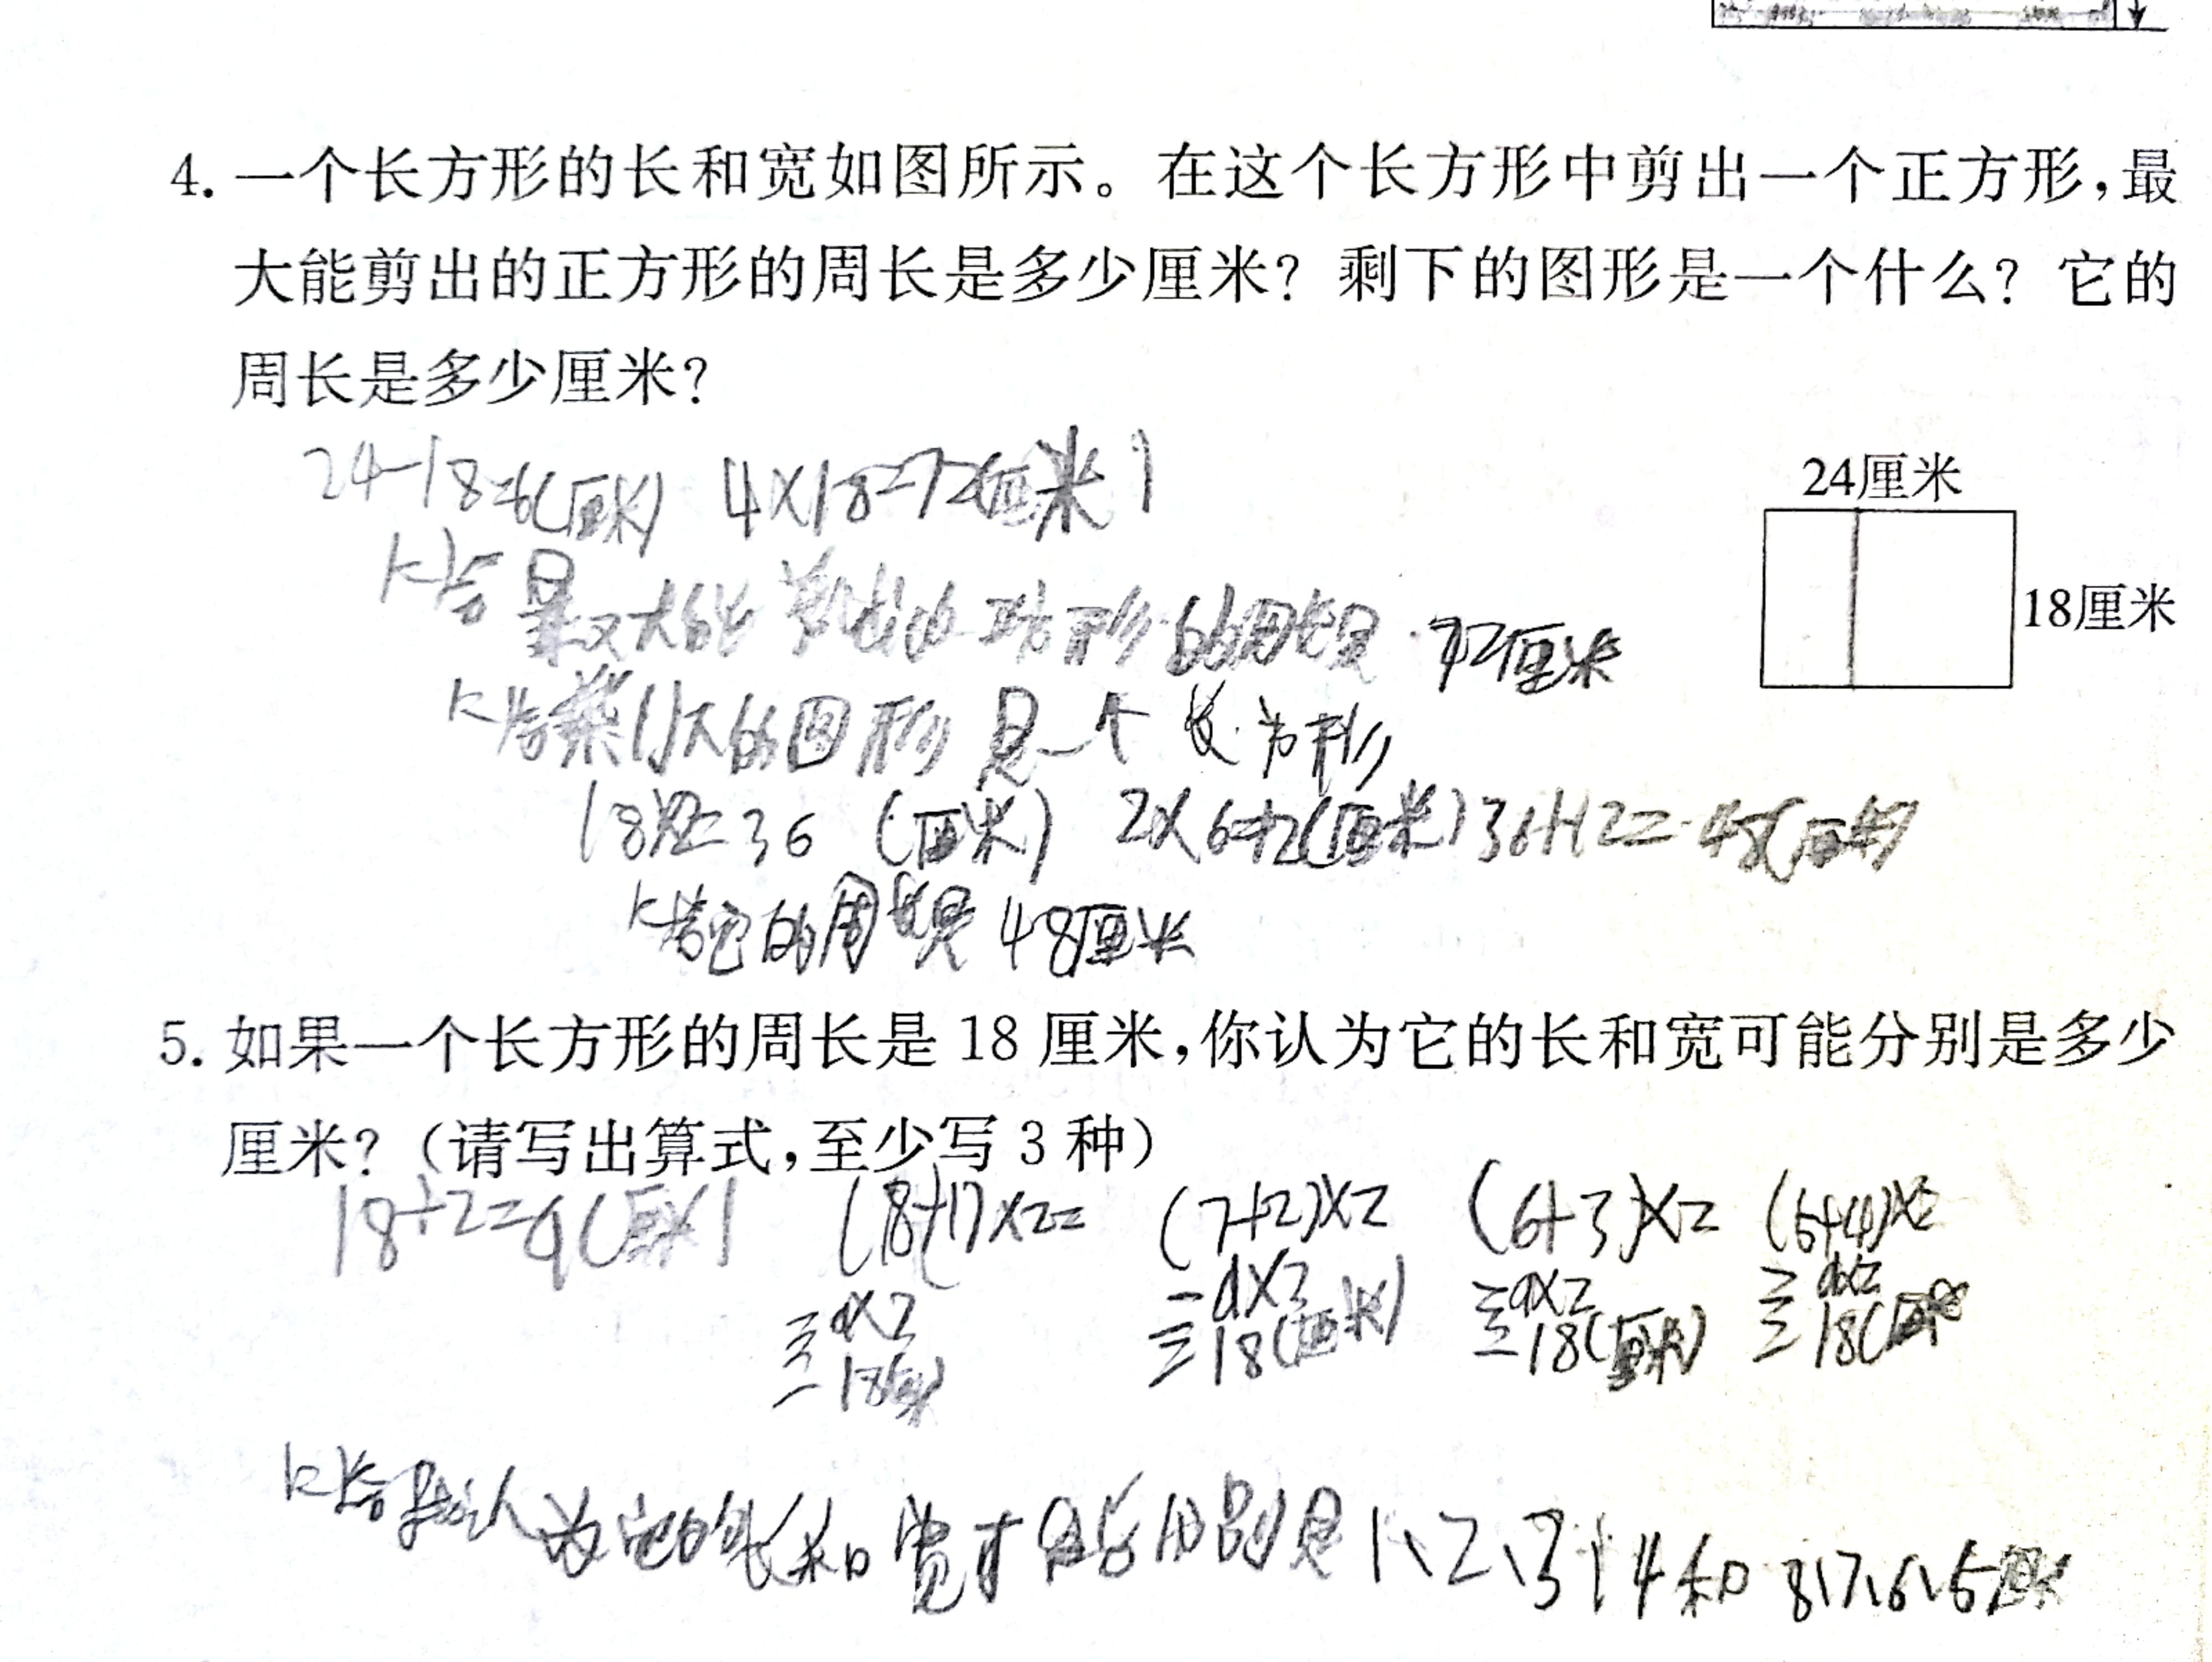 4. 一个长方形的长和宽如图所示。在这个长方形中剪出一个正方形，最
大能剪出的正方形的周长是多少厘米？剩下的图形是一个什么？它的
周长是多少厘米？
24-18=6(厘米) 4×18=72(厘米)
24厘米
答最大能剪出的正方形的周长是72厘米
18厘米
答剩下的图形是一个长方形
18×2=36(厘米) 2×6=12(厘米) 36+12=48(厘米)
答它的周长是48厘米
5. 如果一个长方形的周长是 18 厘米，你认为它的长和宽可能分别是多少
厘米？（请写出算式，至少写 3 种）
18÷2=9(厘米) (8+1)×2= (7+2)×2 (6+3)×2 (5+4)×2
=9×2 =9×2 =9×2 =9×2
=18(厘米) =18(厘米) =18(厘米) =18(厘米)
答我认为它的长和宽可能分别是1、2、3、4和8、7、6、5厘米